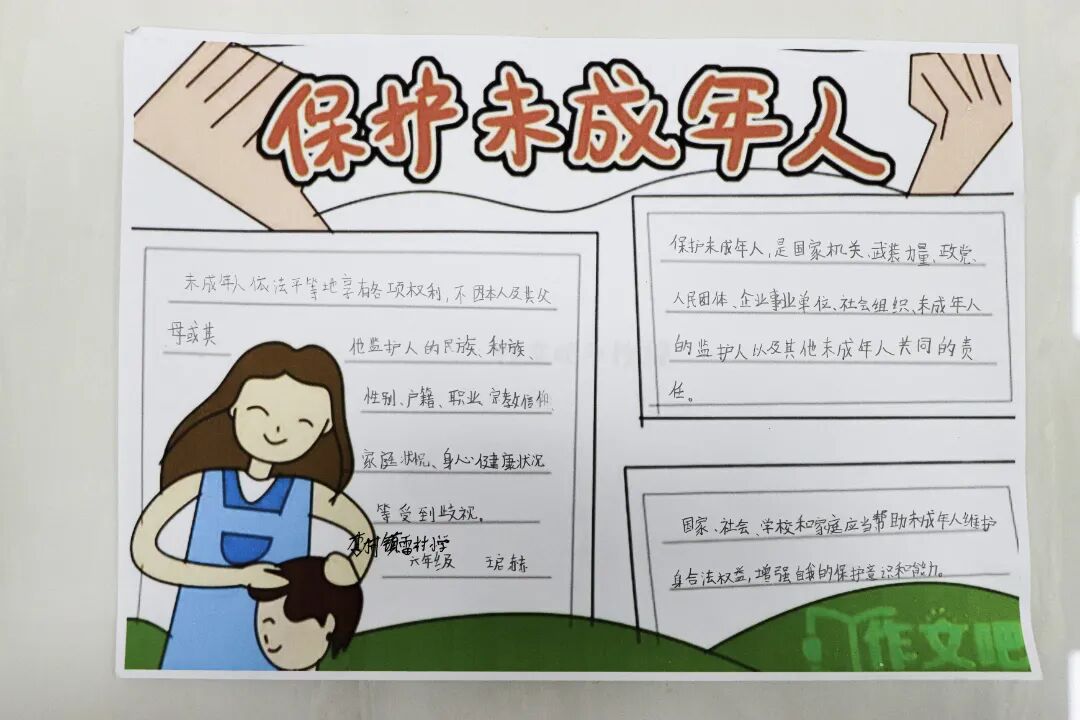 保护未成年人
未成年人依法平等地享有各项权利,不因本人及其父
母或其
他监护人的民族、种族、
性别、户籍、职业、宗教信仰
家庭状况、身心健康状况
等受到歧视。
镇雷村小学
六年级
保护未成年人,是国家机关、武装力量、政党、
人民团体、企业事业单位、社会组织、未成年人
的监护人以及其他未成年人共同的责
任。
国家、社会、学校和家庭应当帮助未成年人维护
身合法权益,增强自我的保护意识和能力。
作文吧